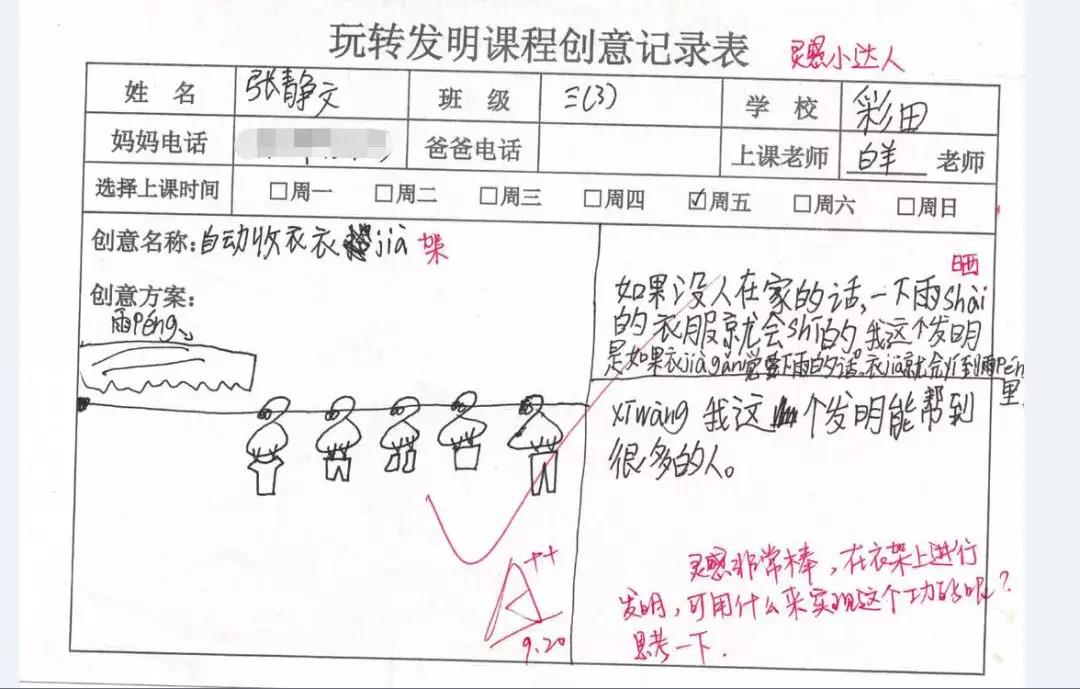 玩转发明课程创意记录表 灵感小达人
姓 名 张静文 班 级 三(3) 学 校 彩田
妈妈电话 爸爸电话 上课老师 白羊 老师
选择上课时间 □周一 □周二 □周三 □周四 ☑周五 □周六 □周日
创意名称:自动收衣衣jià 架
创意方案:
雨péng
晒
如果没人在家的话,一下雨shài
的衣服就会shī的 我这个发明
是如果衣jiàgǎn觉要下雨的话。衣jià就会yí到雨péng
里
xīwàng 我这个发明能帮到
很多的人。
灵感非常棒,在衣架上进行
发明,可用什么来实现这个功能呢?
思考一下.
A++
9.20